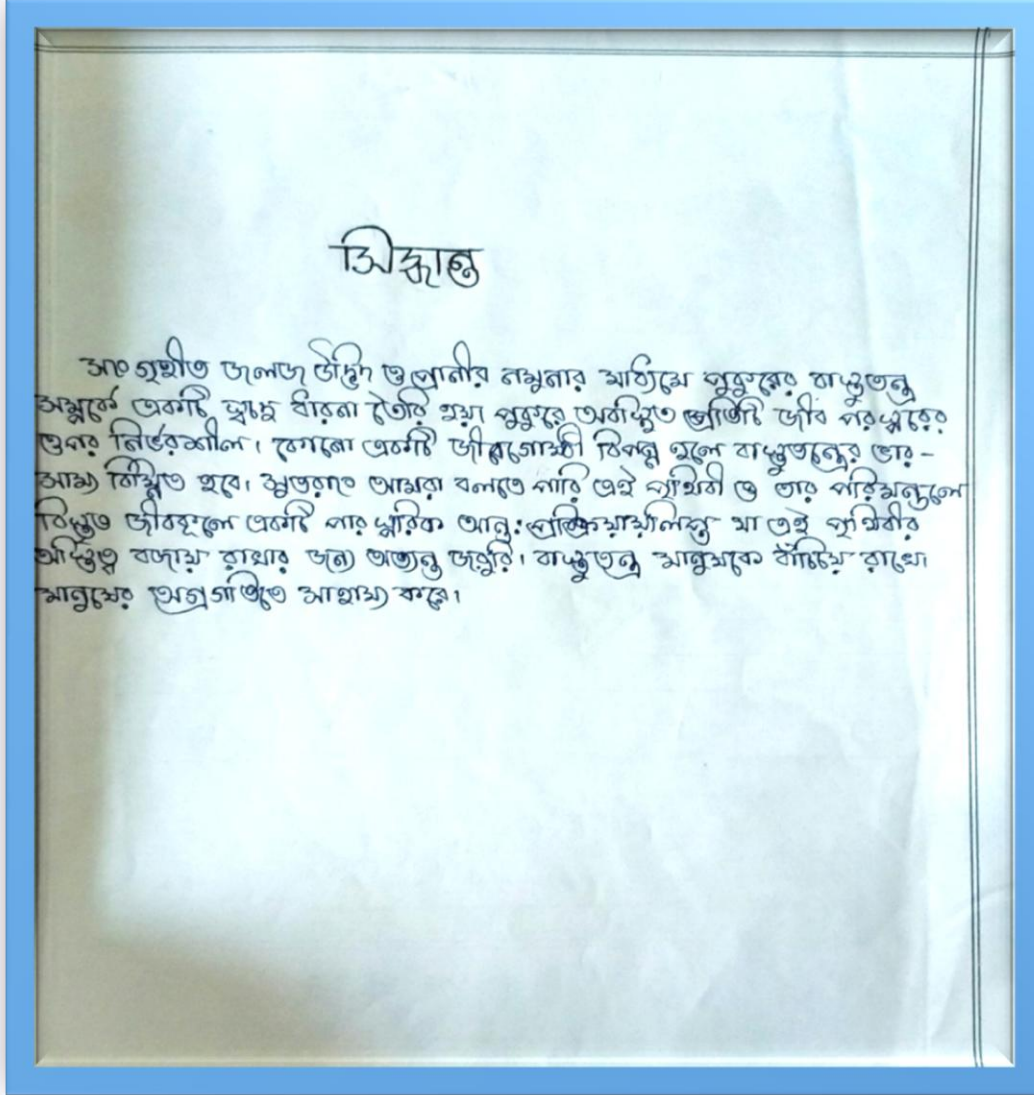 সিদ্ধান্ত
সংগৃহীত জলজ উদ্ভিদ ও প্রানীর নমুনার মাধ্যিমে পুকুরের বাস্তুতন্ত্র
সম্পর্কে একটি স্বচ্ছ ধারনা তৈরি হয়। পুকুরে অবস্থিত প্রতিটি জীব পরস্পরের
ওপর নির্ভরশীল। কোনো একটি জীবগোষ্ঠী বিপন্ন হলে বাস্তুতন্ত্রের ভার-
সাম্য বিঘ্নিত হবে। সুতরাং আমরা বলতে পারি এই পৃথিবী ও তার পরিমন্ডলে
বিস্তৃত জীবকূলে একটি পারস্পরিক আন্ত:প্রক্রিয়ায়লিপ্ত যা এই পৃথিবীর
অস্তিত্ব বজায় রাখার জন্য অত্যন্ত জরুরি। বাস্তুতন্ত্র মানুষকে বাঁচিয়ে রাখে।
মানুষের অগ্রগতিতে সাহায্য করে।